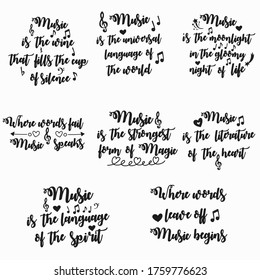 Music
is the wine
that fills the cup
of silence
Music
is the universal
language of
the world
Music
is the moonlight
in the gloomy
night of life
Where words fail
Music speaks
Music
is the strongest
form of Magic
Music
is the literature
of the heart
Music
is the language
of the spirit
Where words
leave off
Music begins
shutterstock.com · 1759776623